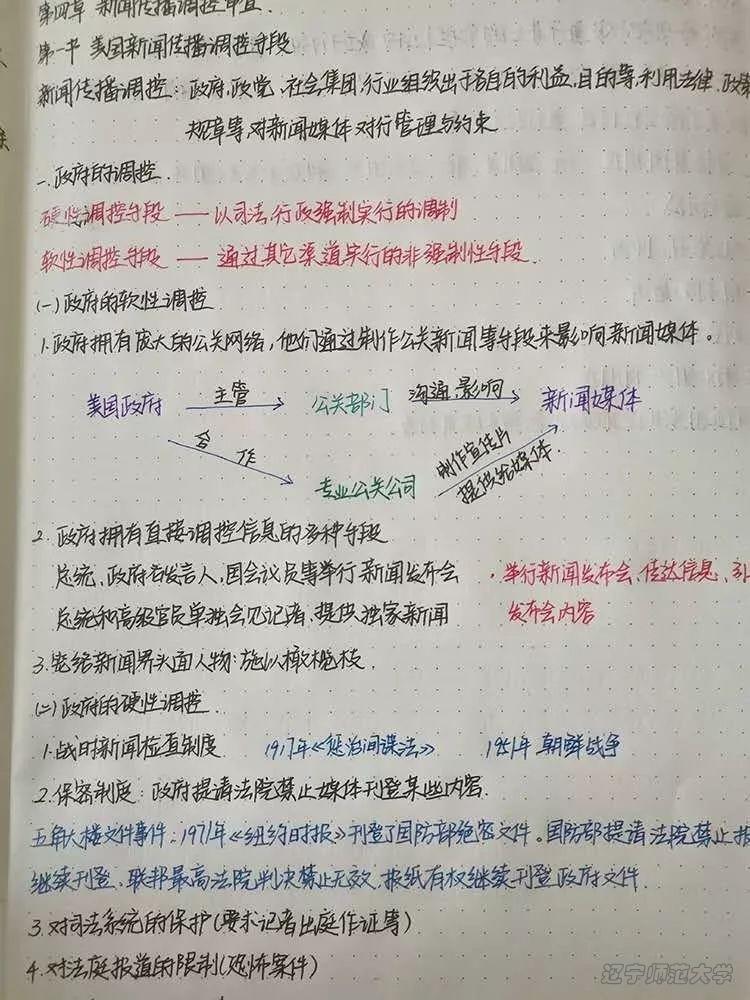 第四章 新闻传播调控
第一节 美国新闻传播调控手段
新闻传播调控：政府、政党、社会集团、行业组织出于各自的利益、目的等，利用法律、政策
规章等，对新闻媒体对行管理与约束
一.政府的调控
硬性调控手段 —— 以司法、行政强制实行的调制
软性调控手段 —— 通过其它渠道实行的非强制性手段.
(一)政府的软性调控
1.政府拥有庞大的公关网络，他们通过制作公关新闻等手段来影响新闻媒体。
美国政府 主管 公关部门 沟通、影响 新闻媒体
合作 专业公关公司 制作宣传片 提供给媒体.
2.政府拥有直接调控信息的多种手段
总统、政府发言人、国会议员等举行新闻发布会 · 举行新闻发布会、传达信息、引
总统和高级官员单独会见记者、提供独家新闻 发布会内容
3.笼络新闻界头面人物：施以橄榄枝.
(二)政府的硬性调控.
1.战时新闻检查制度 1917年《惩治间谍法》 1951年 朝鲜战争
2.保密制度：政府提请法院禁止媒体刊登某些内容.
五角大楼文件事件：1971年《纽约时报》刊登了国防部绝密文件。国防部提请法院禁止报
继续刊登、联邦最高法院判决禁止无效，报纸有权继续刊登政府文件.
3.对司法系统的保护(要求记者出庭作证等)
4.对法庭报道的限制(恐怖案件)
辽宁师范大学